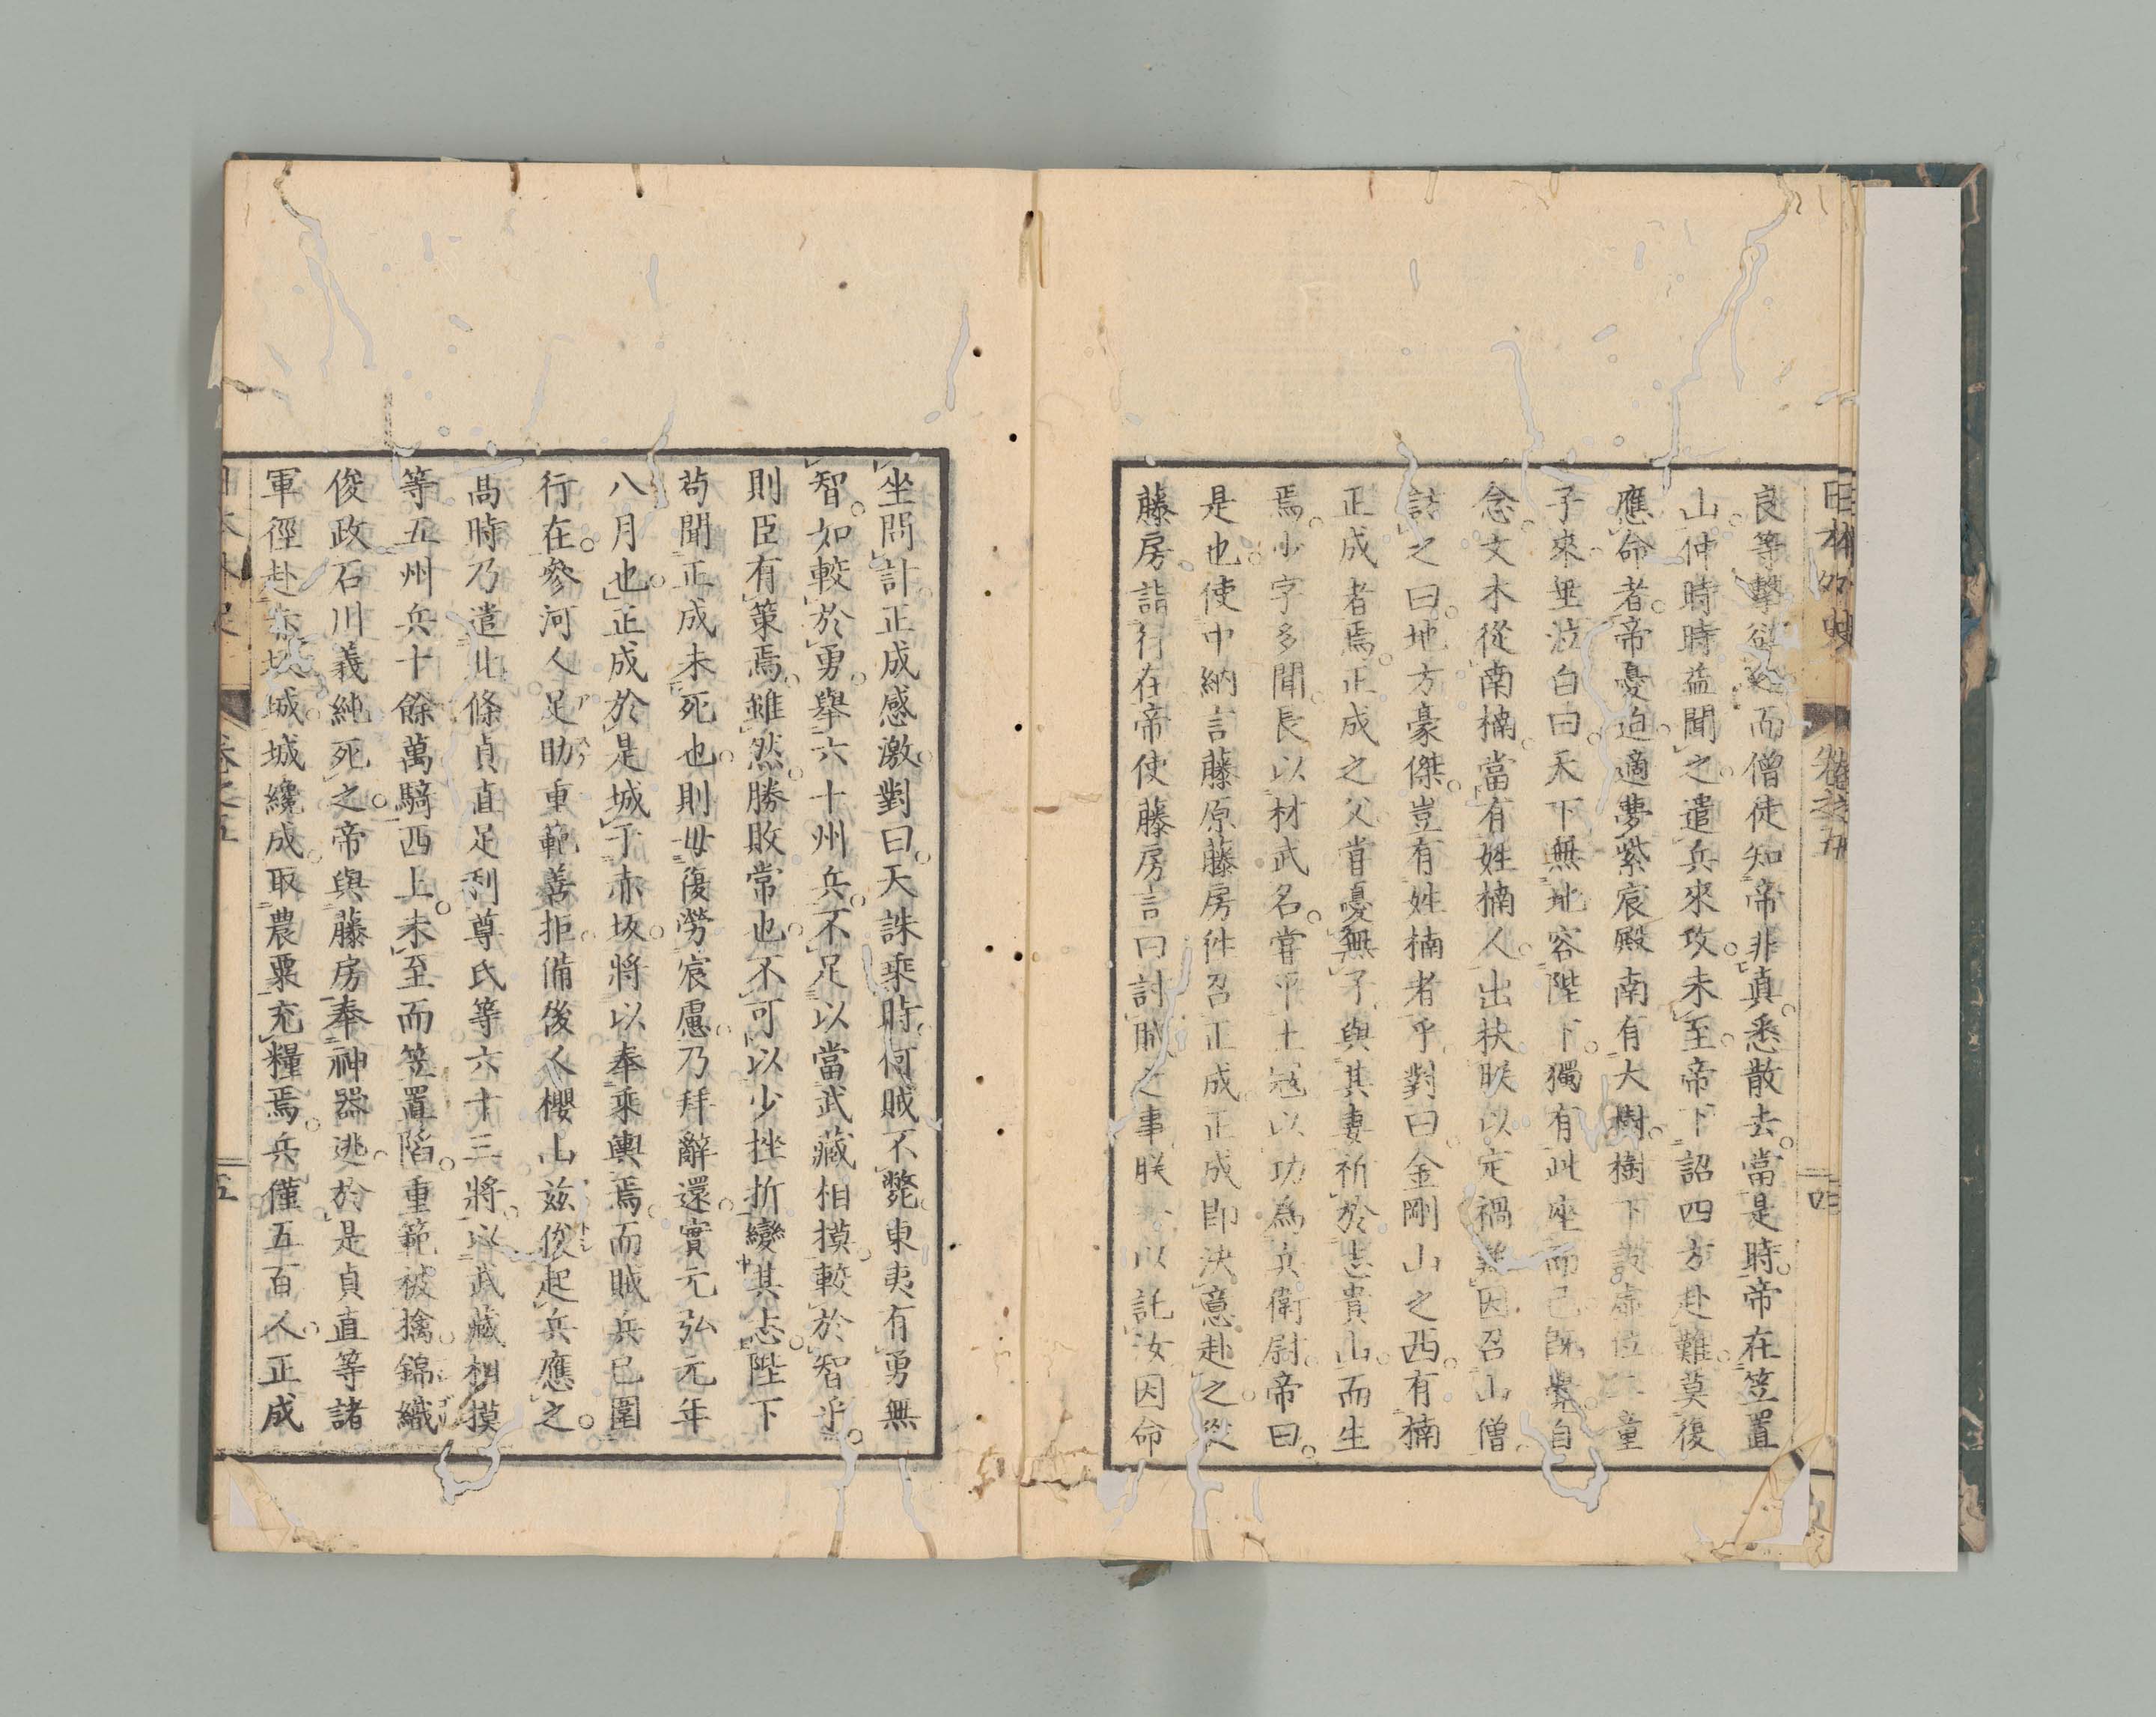 日本外史 卷之五 四
良等擊卻之而僧徒知帝非真悉散去當是時帝在笠置
山仲時時益聞之遣兵來攻未至帝下詔四方赴難莫復
應命者帝憂迫適夢紫宸殿南有大樹樹下設虛位二童
子來垂泣白曰天下無地容陛下獨有此座而已既寤自
念文木從南楠當有姓楠人出扶朕以定禍難因召山僧
訪之曰地方豪傑豈有姓楠者乎對曰金剛山之西有楠
正成者焉正成之父嘗憂無子與其妻祈於志貴山而生
焉小字多聞長以材武名嘗平土寇以功為兵衛尉帝曰
是也使中納言藤原藤房往召正成正成即決意赴之從
藤房詣行在帝使藤房言曰討賊之事朕以託汝因命
坐問計正成感激對曰天誅乘時何賊不斃東夷有勇無
智如較於勇舉六十州兵不足以當武藏相摸較於智乎
則臣有策焉雖然勝敗常也不可以少挫折變其志陛下
苟聞正成未死也則毋復勞宸慮乃拜辭還實元弘元年
八月也正成於是城于赤坂將以奉乘輿焉而賊兵已圍
行在參河人足助重範善拒備後人櫻山茲俊起兵應之
高時乃遣北條貞直足利尊氏等六十三將以武藏相摸
等五州兵十餘萬騎西上未至而笠置陷重範被擒錦織
俊政石川義純死之帝與藤房奉神器逃於是貞直等諸
軍徑赴赤坂城城纔成取農粟充糧焉兵僅五百人正成
日本外史 卷之五 五